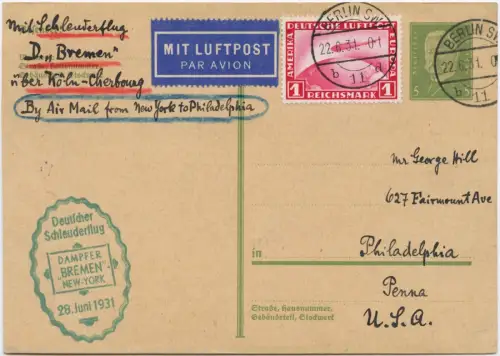 Mit Schleuderflug
D. „Bremen"
über Köln-Cherbourg
By Air Mail from New York to Philadelphia
MIT LUFTPOST
PAR AVION
AMERIKA
DEUTSCHE LUFTPOST
EUROPA
1 REICHSMARK 1
BERLIN SW
22.6.31. 0-1
b 11 a
BERLIN SW
22.6.31. 0-1
b 11
5
Mr George Hill
627 Fairmount Ave
in Philadelphia
Penna
U.S.A.
Straße, Hausnummer,
Gebäudeteil, Stockwerk
Deutscher
Schleuderflug
DAMPFER
„BREMEN"-
NEW-YORK
28. Juni 1931